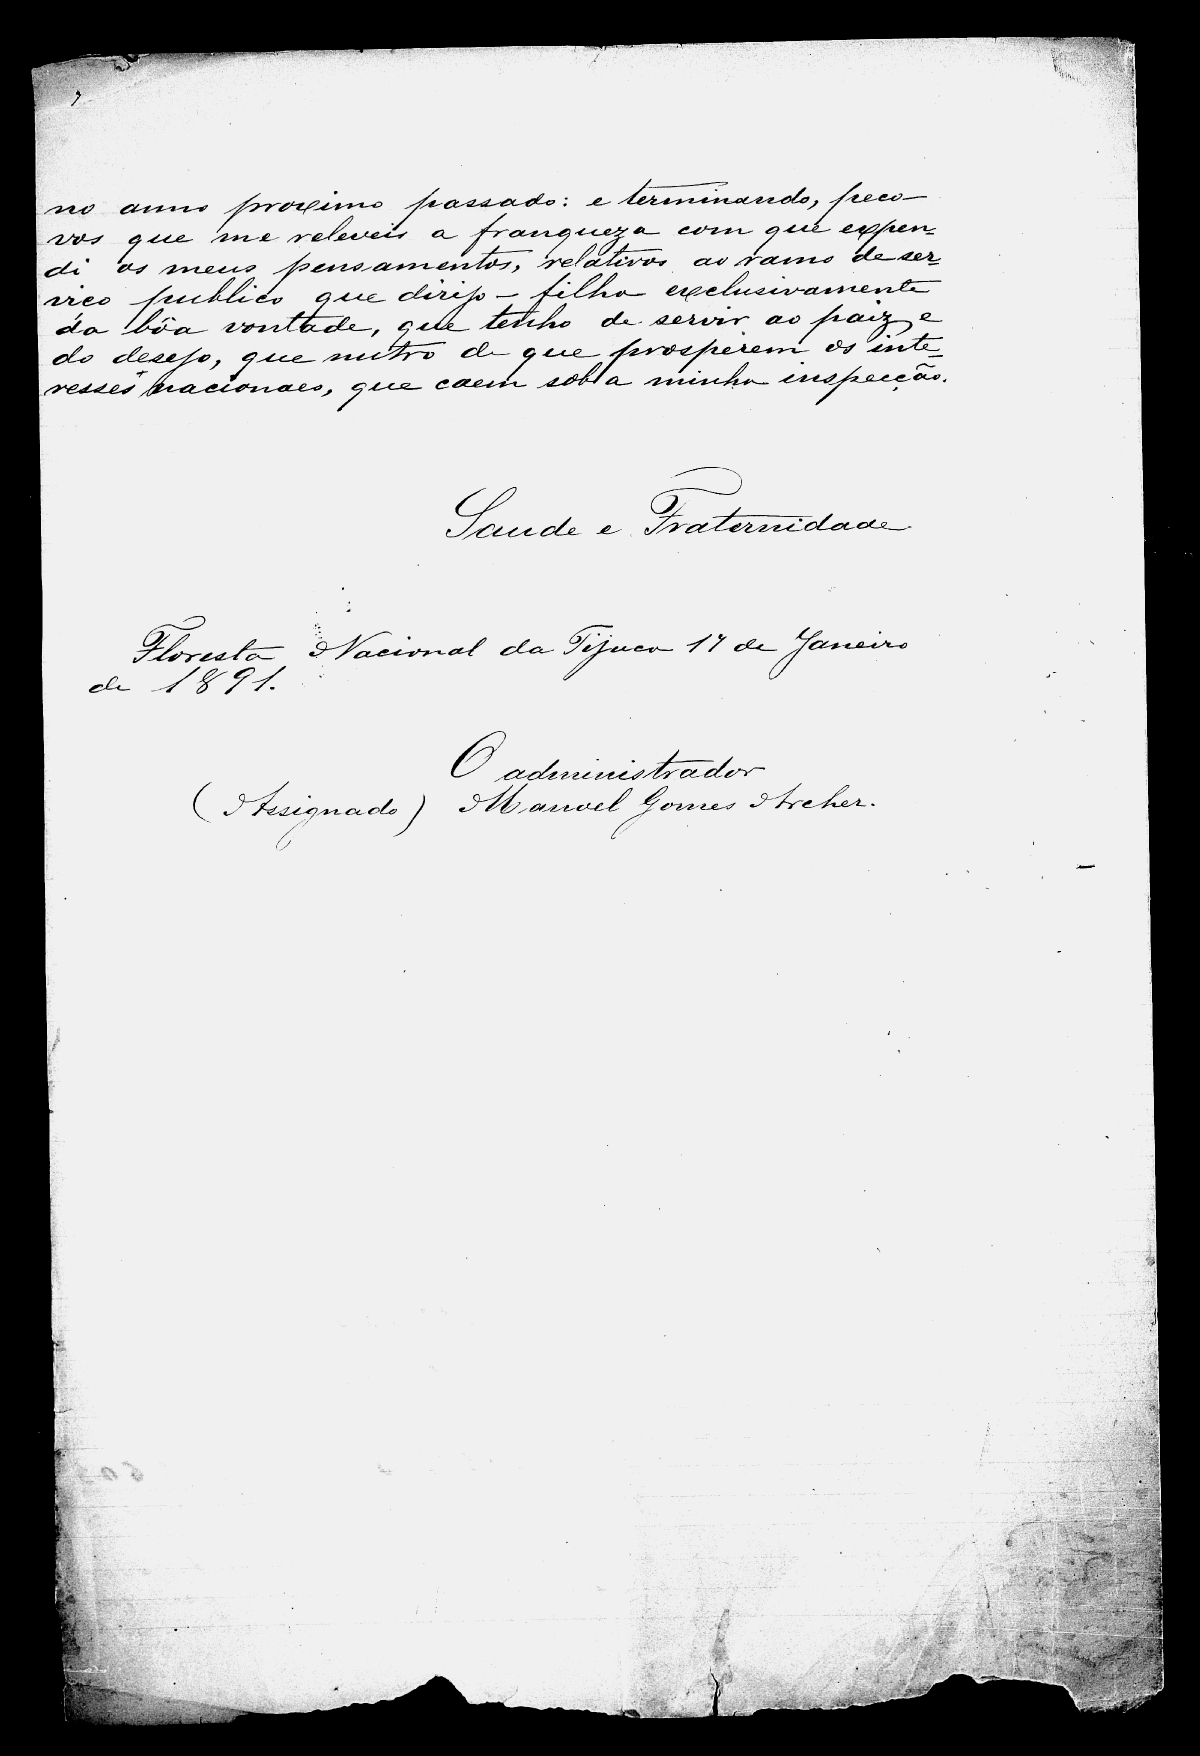 no anno proximo passado: e terminando, peço-
vos que me releveis a franqueza com que expen-
di os meus pensamentos, relativos ao ramo de ser-
viço publico que dirijo - filha exclusivamente
da bôa vontade, que tenho de servir ao paiz, e
do desejo, que nutro de que prosperem os inte-
resses nacionaes, que caem sob a minha inspecção.
Saude e Fraternidade
Floresta Nacional da Tijuca 17 de Janeiro
de 1891.
O administrador
(Assignado) Manoel Gomes Archer.